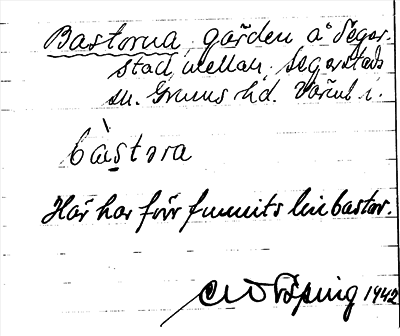 Bastorna, gården å Segerstad, mellan, Segerstads
sn. Grums hd. Värml.
bàstora
Här har förr funnits linbastor.
1942